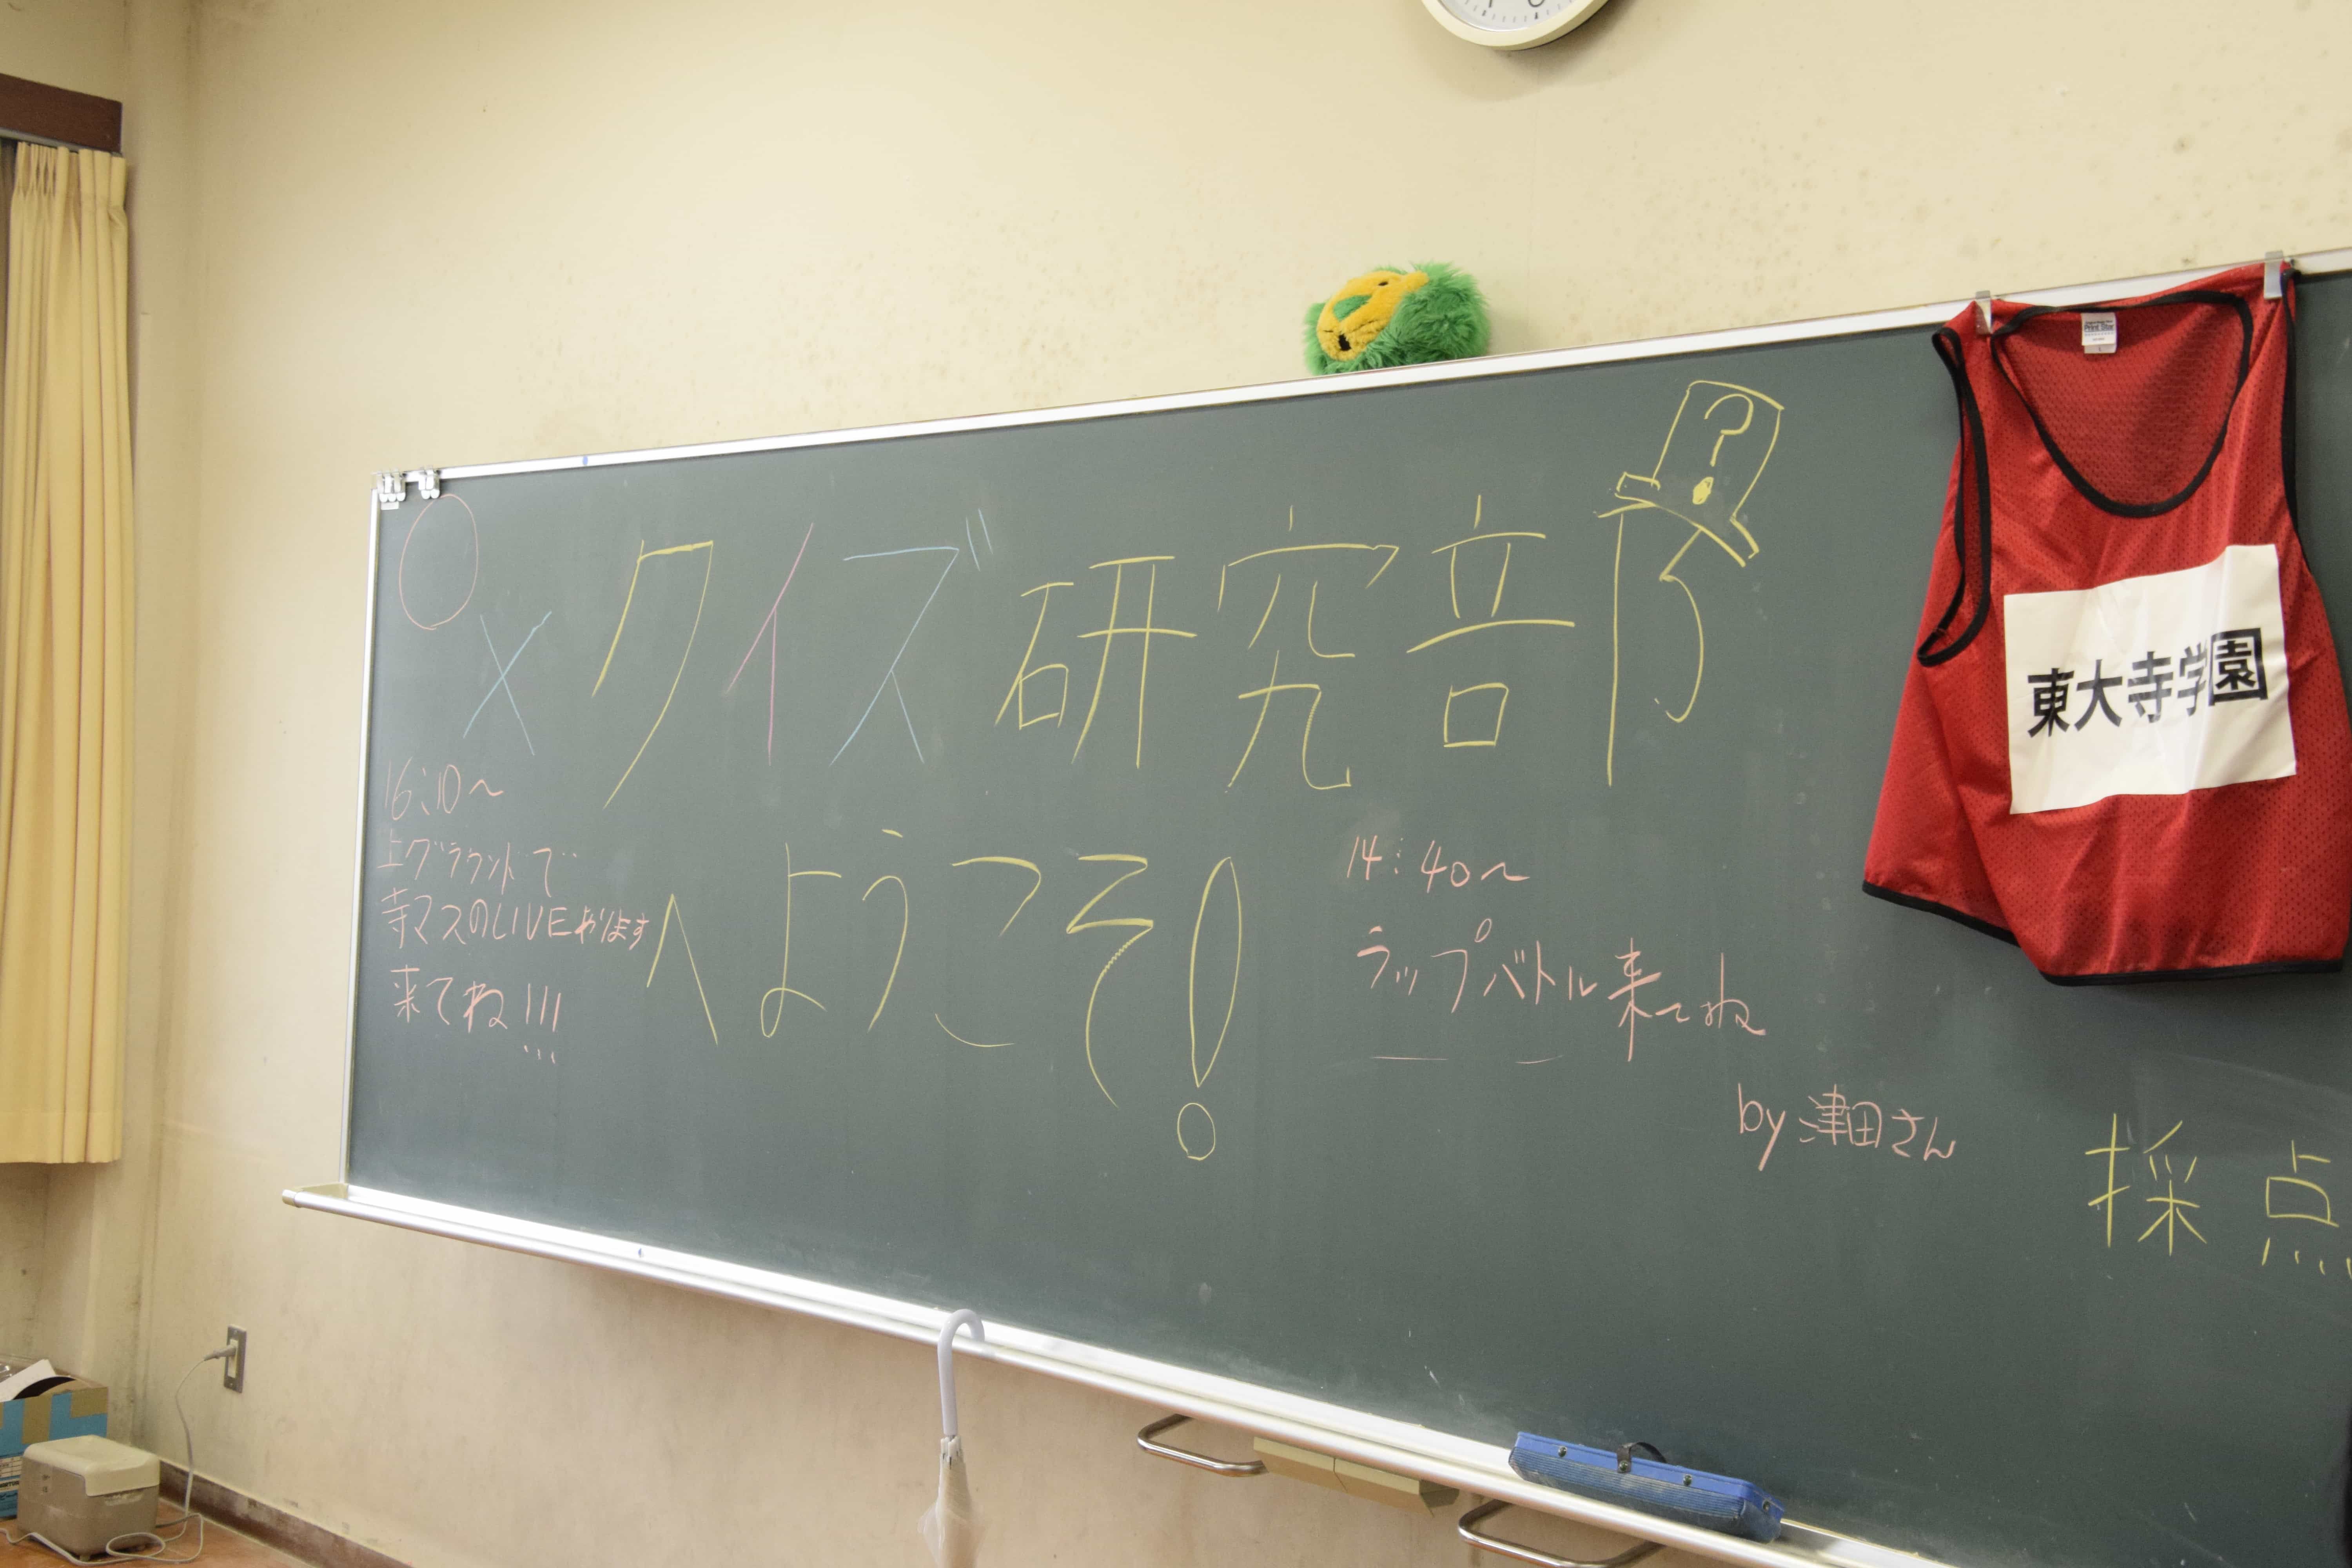 ○×クイズ研究部
へようこそ!
16:10~
上グラウンドで
寺マスのLIVEやります
来てね!!!
14:40~
ラップバトル来てね
by 津田さん
採点
東大寺学園
Print Star
?